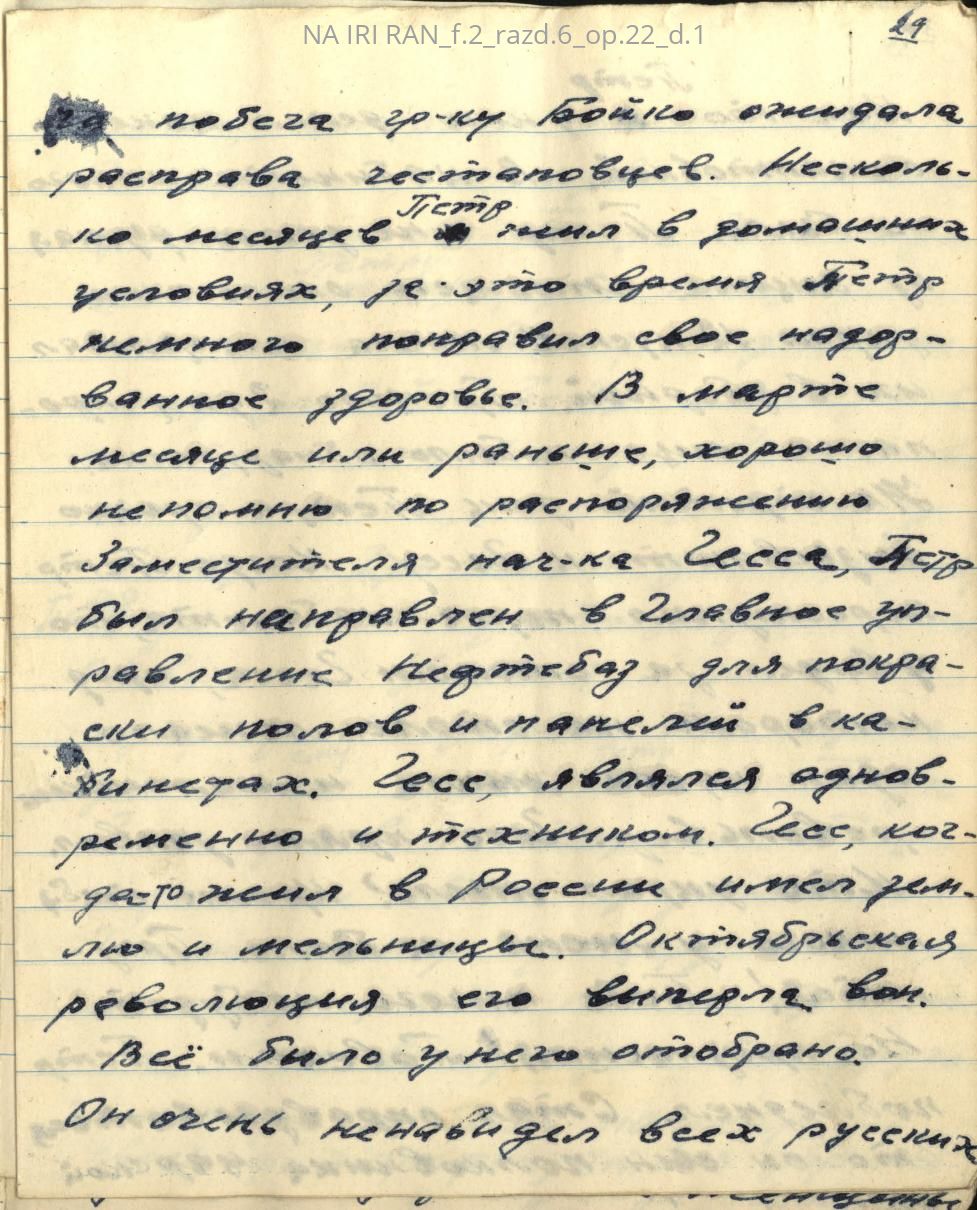 NA IRI RAN_f.2_razd.6_op.22_d.1
29
за побега гр-ку Бойко ожидала
расправа гестаповцев. Несколь-
ко месяцев Петр жил в домашних
условиях, за это время Петр
немного поправил свое надор-
ванное здоровье. В марте
месяце или раньше, хорошо
непомню по распоряжению
Заместителя нач-ка Гесса, Петр
был направлен в Главное уп-
равление Нефтебаз для покра-
ски полов и панелей в ка-
бинетах. Гесс, являлся однов-
ременно и техником. Гесс, ког-
да-то жил в России имел зем-
лю и мельницы. Октябрьская
революция его выперла вон.
Всё было у него отобрано.
Он очень ненавидел всех русских